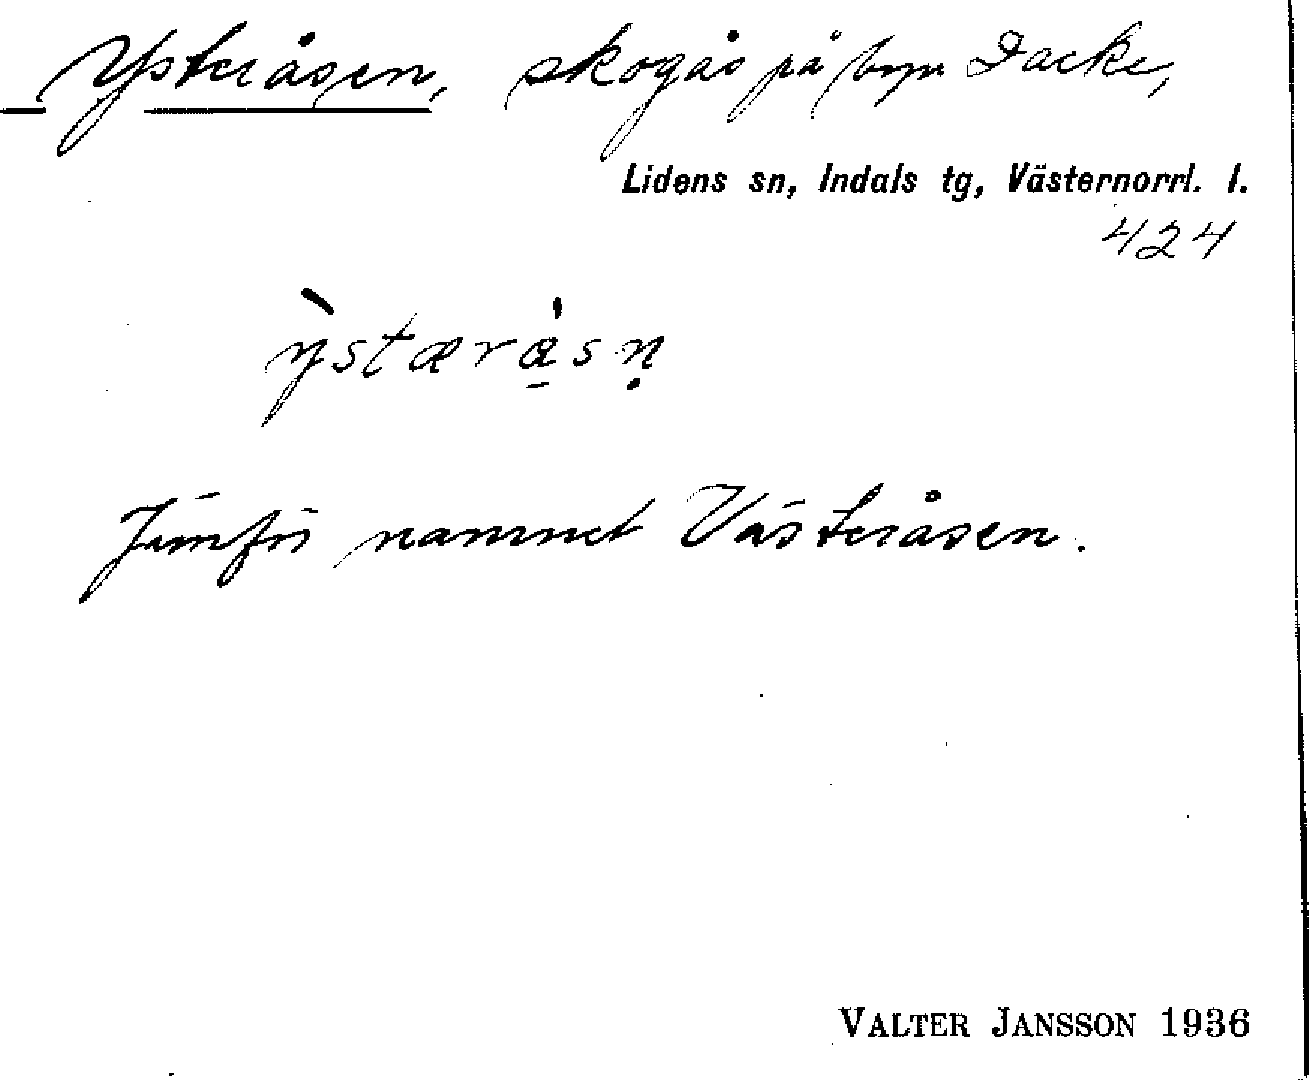 Ysteråsen, skogås på byn Dacke,
Lidens sn, Indals tg, Västernorrl. l.
424
ỳstæra̠̍sṇ
Jämför namnet Västeråsen.
VALTER JANSSON 1936